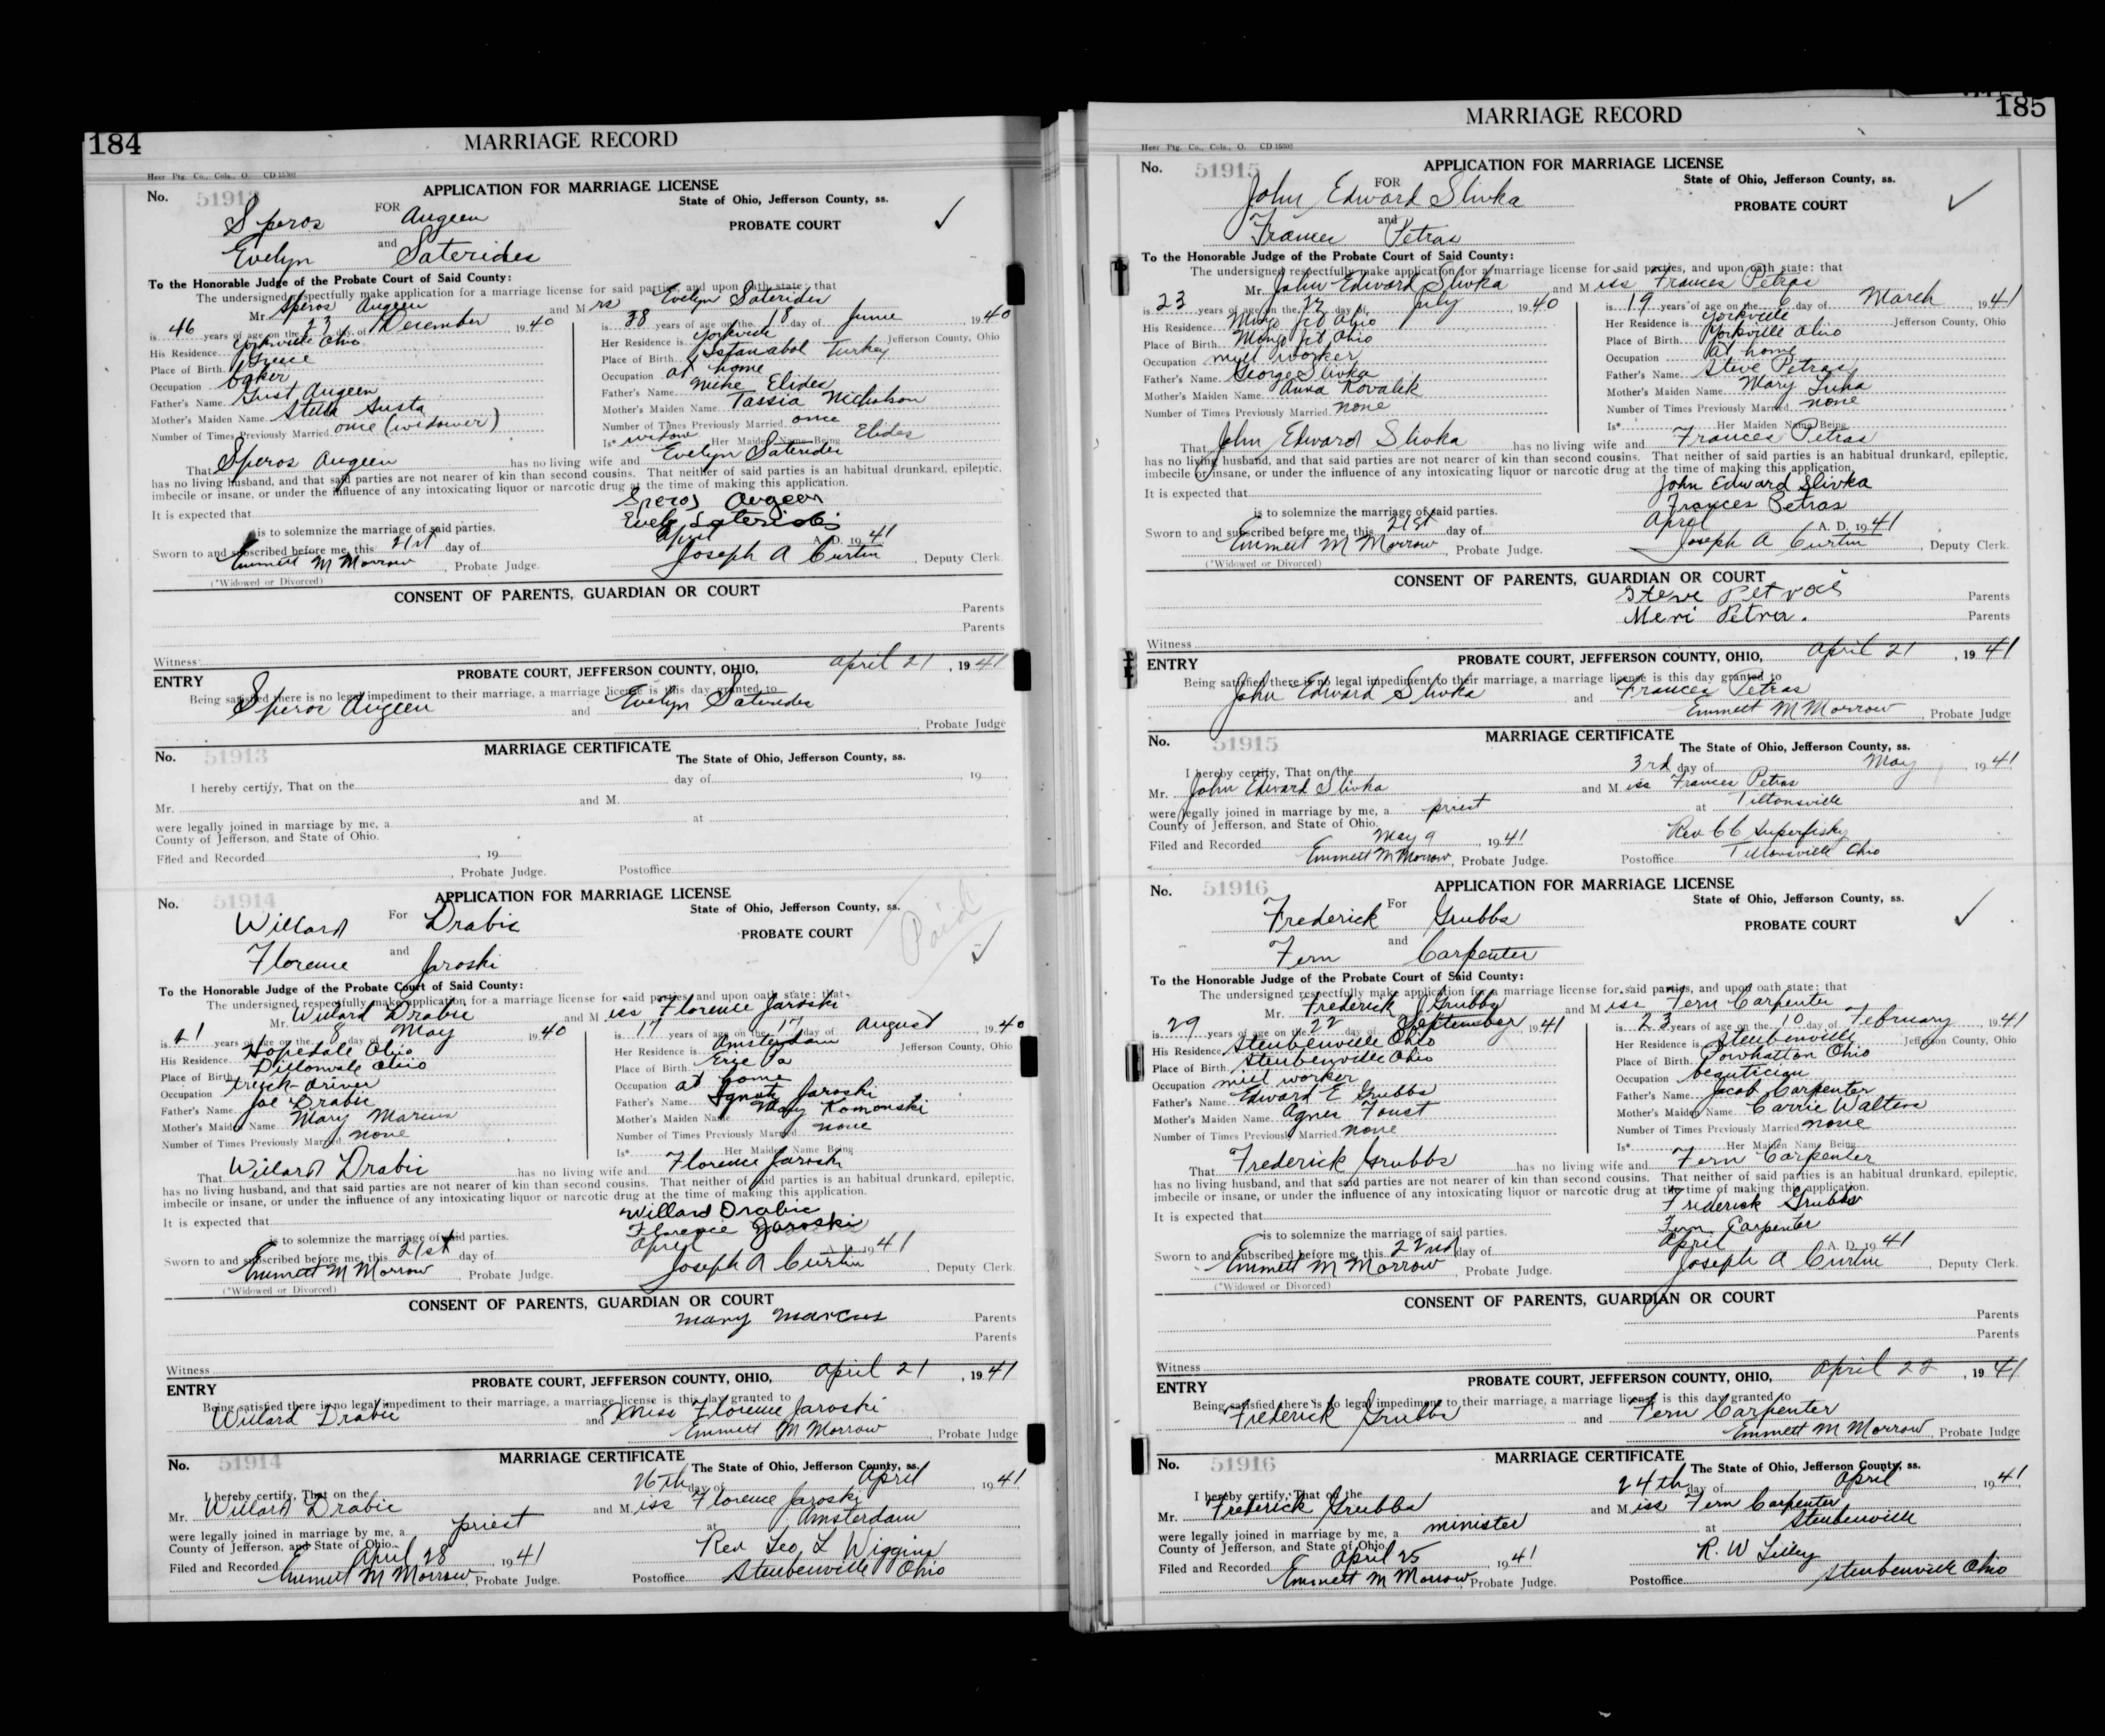 184
MARRIAGE RECORD
Heer Ptg. Co., Cols., O. CD 15302
No. 51913
APPLICATION FOR MARRIAGE LICENSE
FOR
State of Ohio, Jefferson County, ss.
Speros Augeen
PROBATE COURT
and
Evelyn Saterides
To the Honorable Judge of the Probate Court of Said County:
The undersigned respectfully make application for a marriage license for said parties, and upon oath state: that
Mr. Speros Augeen and Mrs Evelyn Saterides
is 46 years of age on the 23 day of December 1940
His Residence Yorkville Ohio
Place of Birth Greece
Occupation baker
Father's Name Gust Augeen
Mother's Maiden Name Stella Susta
Number of Times Previously Married once (widower)
is 38 years of age on the 18 day of June 1940
Her Residence is Yorkville Jefferson County, Ohio
Place of Birth Istanabol Turkey
Occupation at home
Father's Name Nicke Elides
Mother's Maiden Name Tassia Nicholson
Number of Times Previously Married once
Is* widow Her Maiden Name Being Elides
That Speros Augeen has no living wife and Evelyn Saterides
has no living husband, and that said parties are not nearer of kin than second cousins. That neither of said parties is an habitual drunkard, epileptic,
imbecile or insane, or under the influence of any intoxicating liquor or narcotic drug at the time of making this application.
Speros Augeen
It is expected that
is to solemnize the marriage of said parties.
Sworn to and subscribed before me, this 21st day of April A. D. 1941
Emmett M Morrow, Probate Judge. Joseph A Curtin, Deputy Clerk.
(*Widowed or Divorced)
CONSENT OF PARENTS, GUARDIAN OR COURT
Parents
Parents
Witness
ENTRY PROBATE COURT, JEFFERSON COUNTY, OHIO, April 21, 1941
Being satisfied there is no legal impediment to their marriage, a marriage license is this day granted to
Speros Augeen and Evelyn Saterides
, Probate Judge
No. 51913 MARRIAGE CERTIFICATE
The State of Ohio, Jefferson County, ss.
I hereby certify, That on the day of 19
Mr. and M.
were legally joined in marriage by me, a at
County of Jefferson, and State of Ohio.
Filed and Recorded 19
, Probate Judge. Postoffice
No. 51914
APPLICATION FOR MARRIAGE LICENSE
For
State of Ohio, Jefferson County, ss.
Willard Drabic
PROBATE COURT
Paid
and
Florence Jaroski
To the Honorable Judge of the Probate Court of Said County:
The undersigned respectfully make application for a marriage license for said parties, and upon oath state: that
Mr. Willard Drabic and Miss Florence Jaroski
is 21 years of age on the 8 day of May 1940
His Residence Hopedale Ohio
Place of Birth Dillonvale Ohio
Occupation truck driver
Father's Name Joe Drabic
Mother's Maiden Name Mary Marcus
Number of Times Previously Married none
is 17 years of age on the 17 day of August 1940
Her Residence is Amsterdam Jefferson County, Ohio
Place of Birth Erie Pa
Occupation at home
Father's Name Ignatz Jaroski
Mother's Maiden Name Mary Komonski
Number of Times Previously Married none
Is* Her Maiden Name Being
That Willard Drabic has no living wife and Florence Jaroski
has no living husband, and that said parties are not nearer of kin than second cousins. That neither of said parties is an habitual drunkard, epileptic,
imbecile or insane, or under the influence of any intoxicating liquor or narcotic drug at the time of making this application.
Willard Drabic
Florence Jaroski
It is expected that
is to solemnize the marriage of said parties.
Sworn to and subscribed before me, this 21st day of April 1941
Emmett M Morrow, Probate Judge. Joseph A Curtin, Deputy Clerk.
(*Widowed or Divorced)
CONSENT OF PARENTS, GUARDIAN OR COURT
Mary Marcus Parents
Parents
Witness
ENTRY PROBATE COURT, JEFFERSON COUNTY, OHIO, April 21, 1941
Being satisfied there is no legal impediment to their marriage, a marriage license is this day granted to
Willard Drabic and Miss Florence Jaroski
Emmett M Morrow, Probate Judge
No. 51914 MARRIAGE CERTIFICATE
The State of Ohio, Jefferson County, ss.
I hereby certify, That on the 26th day of April 1941
Mr. Willard Drabic and Miss Florence Jaroski
were legally joined in marriage by me, a priest at Amsterdam
County of Jefferson, and State of Ohio.
Rev Leo L Wiggins
Filed and Recorded April 28, 1941
Emmett M Morrow, Probate Judge. Postoffice Steubenville Ohio
185
MARRIAGE RECORD
Heer Ptg. Co., Cols., O. CD 15302
No. 51915
APPLICATION FOR MARRIAGE LICENSE
FOR
State of Ohio, Jefferson County, ss.
John Edward Slivka
PROBATE COURT
and
Frances Petras
To the Honorable Judge of the Probate Court of Said County:
The undersigned respectfully make application for a marriage license for said parties, and upon oath state: that
Mr. John Edward Slivka and Miss Frances Petras
is 23 years of age on the day of July 1940
His Residence Mingo Jct Ohio
Place of Birth Mingo Jct Ohio
Occupation mill worker
Father's Name George Slivka
Mother's Maiden Name Anna Kovalik
Number of Times Previously Married none
is 19 years of age on the 6 day of March 1941
Her Residence is Yorkville Jefferson County, Ohio
Place of Birth Yorkville Ohio
Occupation at home
Father's Name Steve Petras
Mother's Maiden Name Mary Juha
Number of Times Previously Married none
Is* Her Maiden Name Being
That John Edward Slivka has no living wife and Frances Petras
has no living husband, and that said parties are not nearer of kin than second cousins. That neither of said parties is an habitual drunkard, epileptic,
imbecile or insane, or under the influence of any intoxicating liquor or narcotic drug at the time of making this application.
John Edward Slivka
It is expected that
Frances Petras
is to solemnize the marriage of said parties.
Sworn to and subscribed before me, this 21st day of April A. D. 1941
Emmett M Morrow, Probate Judge. Joseph A Curtin, Deputy Clerk.
(*Widowed or Divorced)
CONSENT OF PARENTS, GUARDIAN OR COURT
Steve Petras Parents
Meri Petra. Parents
Witness
ENTRY PROBATE COURT, JEFFERSON COUNTY, OHIO, April 21, 1941
Being satisfied there is no legal impediment to their marriage, a marriage license is this day granted to
John Edward Slivka and Frances Petras
Emmett M Morrow, Probate Judge
No. 51915 MARRIAGE CERTIFICATE
The State of Ohio, Jefferson County, ss.
I hereby certify, That on the 3rd day of May 1941
Mr. John Edward Slivka and Miss Frances Petras
were legally joined in marriage by me, a priest at Tiltonsville
County of Jefferson, and State of Ohio.
Rev C C Superfisky
Filed and Recorded May 9 1941
Emmett M Morrow, Probate Judge. Postoffice Tiltonsville Ohio
No. 51916
APPLICATION FOR MARRIAGE LICENSE
For
State of Ohio, Jefferson County, ss.
Frederick Grubbs
PROBATE COURT
and
Fern Carpenter
To the Honorable Judge of the Probate Court of Said County:
The undersigned respectfully make application for a marriage license for said parties, and upon oath state: that
Mr. Frederick Grubbs and Miss Fern Carpenter
is 29 years of age on the 22 day of September 1941
His Residence Steubenville Ohio
Place of Birth Steubenville Ohio
Occupation mill worker
Father's Name Edward E Grubbs
Mother's Maiden Name Agnes Foust
Number of Times Previously Married none
is 23 years of age on the 10 day of February 1941
Her Residence is Steubenville Jefferson County, Ohio
Place of Birth Powhattan Ohio
Occupation beautician
Father's Name Jacob Carpenter
Mother's Maiden Name Carrie Walters
Number of Times Previously Married none
Is* Her Maiden Name Being
That Frederick Grubbs has no living wife and Fern Carpenter
has no living husband, and that said parties are not nearer of kin than second cousins. That neither of said parties is an habitual drunkard, epileptic,
imbecile or insane, or under the influence of any intoxicating liquor or narcotic drug at the time of making this application.
Frederick Grubbs
It is expected that
Fern Carpenter
is to solemnize the marriage of said parties.
Sworn to and subscribed before me, this 22nd day of April A. D. 1941
Emmett M Morrow, Probate Judge. Joseph A Curtin, Deputy Clerk.
(*Widowed or Divorced)
CONSENT OF PARENTS, GUARDIAN OR COURT
Parents
Parents
Witness
ENTRY PROBATE COURT, JEFFERSON COUNTY, OHIO, April 22, 1941
Being satisfied there is no legal impediment to their marriage, a marriage license is this day granted to
Frederick Grubbs and Fern Carpenter
Emmett M Morrow, Probate Judge
No. 51916 MARRIAGE CERTIFICATE
The State of Ohio, Jefferson County, ss.
I hereby certify, That on the 24th day of April 1941
Mr. Frederick Grubbs and Miss Fern Carpenter
were legally joined in marriage by me, a minister at Steubenville
County of Jefferson, and State of Ohio.
R. W Lilley
Filed and Recorded April 25 1941
Emmett M Morrow, Probate Judge. Postoffice Steubenville Ohio